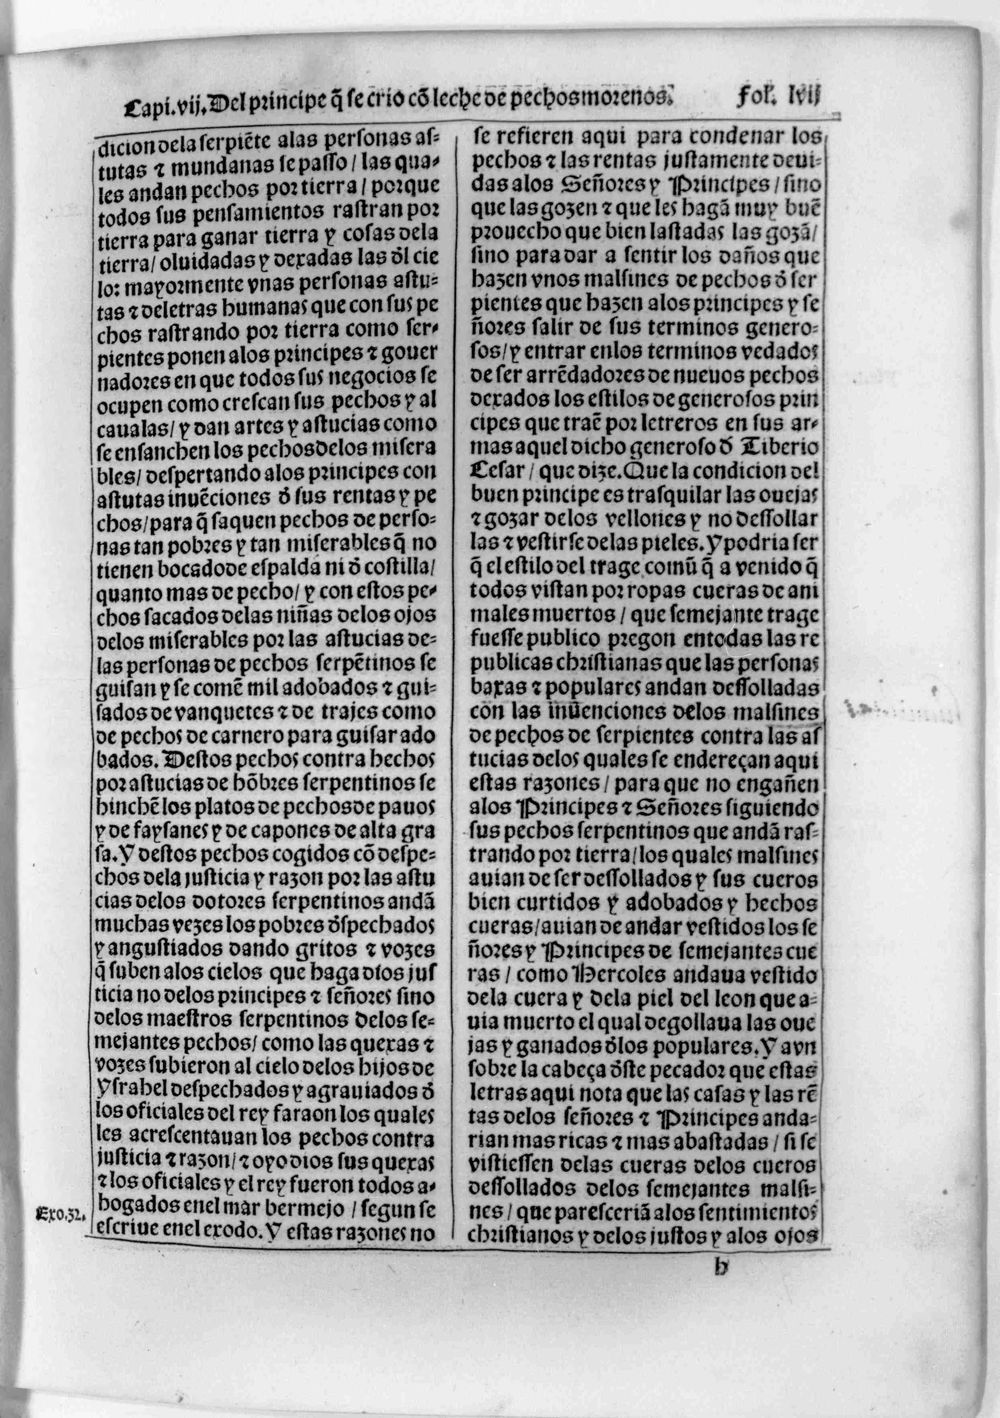 Capi.vij.Del principe q̃ se crio cõ leche de pechos morenos. Fol. lvij
dicion dela serpiẽte alas personas as-
tutas ⁊ mundanas se passo/las qua-
les andan pechos por tierra/porque
todos sus pensamientos rastran por
tierra para ganar tierra y cosas dela
tierra/oluidadas y dexadas las ðl cie
lo: mayormente vnas personas astu-
tas ⁊ deletras humanas que con sus pe
chos rastrando por tierra como ser-
pientes ponen alos principes ⁊ gouer
nadores en que todos sus negocios se
ocupen como crescan sus pechos y al
caualas/y dan artes y astucias como
se ensanchen los pechos delos misera
bles/despertando alos principes con
astutas inuẽciones ð sus rentas y pe
chos/para q̃ saquen pechos de perso-
nas tan pobres y tan miserables q̃ no
tienen bocado de espalda ni ð costilla/
quanto mas de pecho/y con estos pe-
chos sacados delas niñas delos ojos
delos miserables por las astucias de-
las personas de pechos serpẽtinos se
guisan y se comẽ mil adobados ⁊ gui-
sados de vanquetes ⁊ de trajes como
de pechos de carnero para guisar ado
bados. Destos pechos contra hechos
por astucias de hõbres serpentinos se
hinchẽ los platos de pechos de pauos
y de faysanes y de capones de alta gra
sa. Y destos pechos cogidos cõ despe-
chos dela justicia y razon por las astu
cias delos dotores serpentinos andã
muchas vezes los pobres ðspechados
y angustiados dando gritos ⁊ vozes
q̃ suben alos cielos que haga dios jus
ticia no delos principes ⁊ señores sino
delos maestros serpentinos delos se-
mejantes pechos/como las quexas ⁊
vozes subieron al cielo delos hijos de
Ysrahel despechados y agrauiados ð
los oficiales del rey faraon los quales
les acrescentauan los pechos contra
justicia ⁊ razon/⁊ oyo dios sus quexas
⁊ los oficiales y el rey fueron todos a-
hogados enel mar bermejo/segun se
Exo.32.
escriue enel exodo. Y estas razones no
se refieren aqui para condenar los
pechos ⁊ las rentas justamente deui-
das alos Señores y Principes/sino
que las gozen ⁊ que les hagã muy buẽ
prouecho que bien lastadas las gozã/
sino para dar a sentir los daños que
hazen vnos malsines de pechos ð ser
pientes que hazen alos principes y se
ñores salir de sus terminos genero-
sos/y entrar enlos terminos vedados
de ser arrẽdadores de nueuos pechos
dexados los estilos de generosos prin
cipes que traẽ por letreros en sus ar-
mas aquel dicho generoso ð Tiberio
Cesar/que dize. Que la condicion del
buen principe es trasquilar las ouejas
⁊ gozar delos vellones y no dessollar
las ⁊ vestirse delas pieles. Y podria ser
q̃ el estilo del trage comũ q̃ a venido q̃
todos vistan por ropas cueras de ani
males muertos/que semejante trage
fuesse publico pregon entodas las re
publicas christianas que las personas
baxas ⁊ populares andan dessolladas
con las inũenciones delos malsines
de pechos de serpientes contra las as
tucias delos quales se endereçan aqui
estas razones/para que no engañen
alos Principes ⁊ Señores siguiendo
sus pechos serpentinos que andã ras-
trando por tierra/los quales malsines
auian de ser dessollados y sus cueros
bien curtidos y adobados y hechos
cueras/auian de andar vestidos los se
ñores y Principes de semejantes cue
ras/como Hercoles andaua vestido
dela cuera y dela piel del leon que a-
uia muerto el qual degollaua las oue
jas y ganados ðlos populares. Y avn
sobre la cabeça ðste pecador que estas
letras aqui nota que las casas y las rẽ
tas delos señores ⁊ Principes anda-
rian mas ricas ⁊ mas abastadas/si se
vistiessen delas cueras delos cueros
dessollados delos semejantes malsi-
nes/que paresceriã alos sentimientos
christianos y delos justos y alos ojos
h